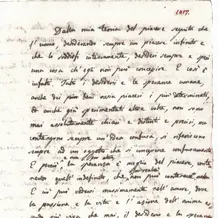 1017.
Dalla mia teoria del piacere seguita che
l'uomo desiderando sempre un piacere infinito e
che lo soddisfi intieramente, desideri sempre e speri
una cosa ch'egli non può concepire. E così è
infatti. Tutti i desiderii e le speranze umane,
anche dei più ossia piaceri i più determinati,
ed anche già sperimentati altre volte, non sono
mai assolutamente chiari e distinti e precisi, ma
contengono sempre un'idea confusa, si riferiscono
sempre ad un oggetto che si concepisce confusamente.
e non per altro,
E perciò la speranza è meglio del piacere, conte-
nendo quell'indefinito, che non può
E ciò può vedersi massimamente nell'amore, dove
la passione e la vita e l'azione dell'anima
più viva che mai, il desiderio e la speran-